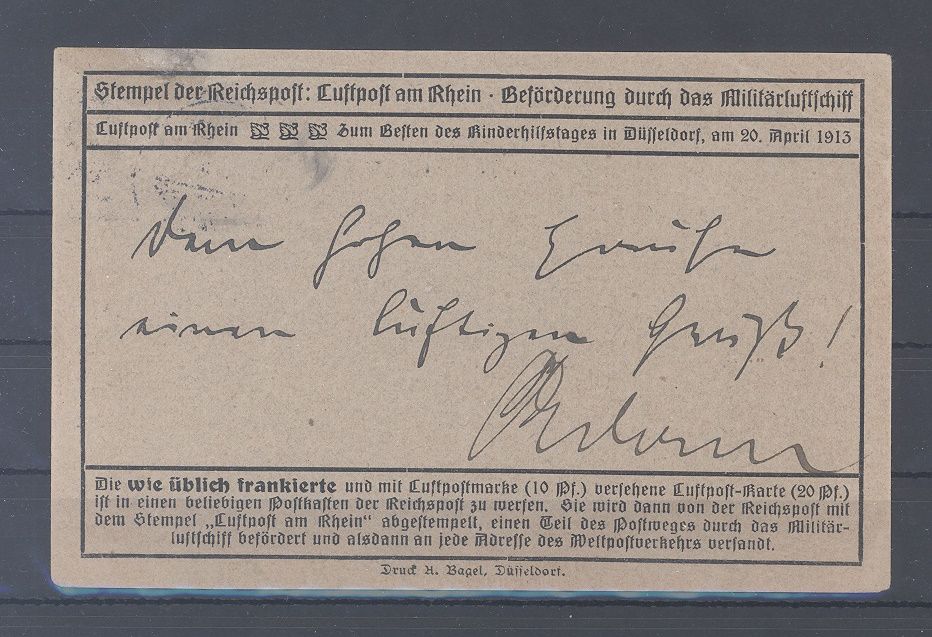 Stempel der Reichspost: Luftpost am Rhein · Beförderung durch das Militärluftschiff
Luftpost am Rhein Zum Besten des Kinderhilfstages in Düsseldorf, am 20. April 1913
Dem hohen
einen luftigen Gruß!
Die wie üblich frankierte und mit Luftpostmarke (10 Pf.) versehene Luftpost-Karte (20 Pf.)
ist in einen beliebigen Postkasten der Reichspost zu werfen. Sie wird dann von der Reichspost mit
dem Stempel „Luftpost am Rhein“ abgestempelt, einen Teil des Postweges durch das Militär-
luftschiff befördert und alsdann an jede Adresse des Weltpostverkehrs versandt.
Druck A. Bagel, Düsseldorf.